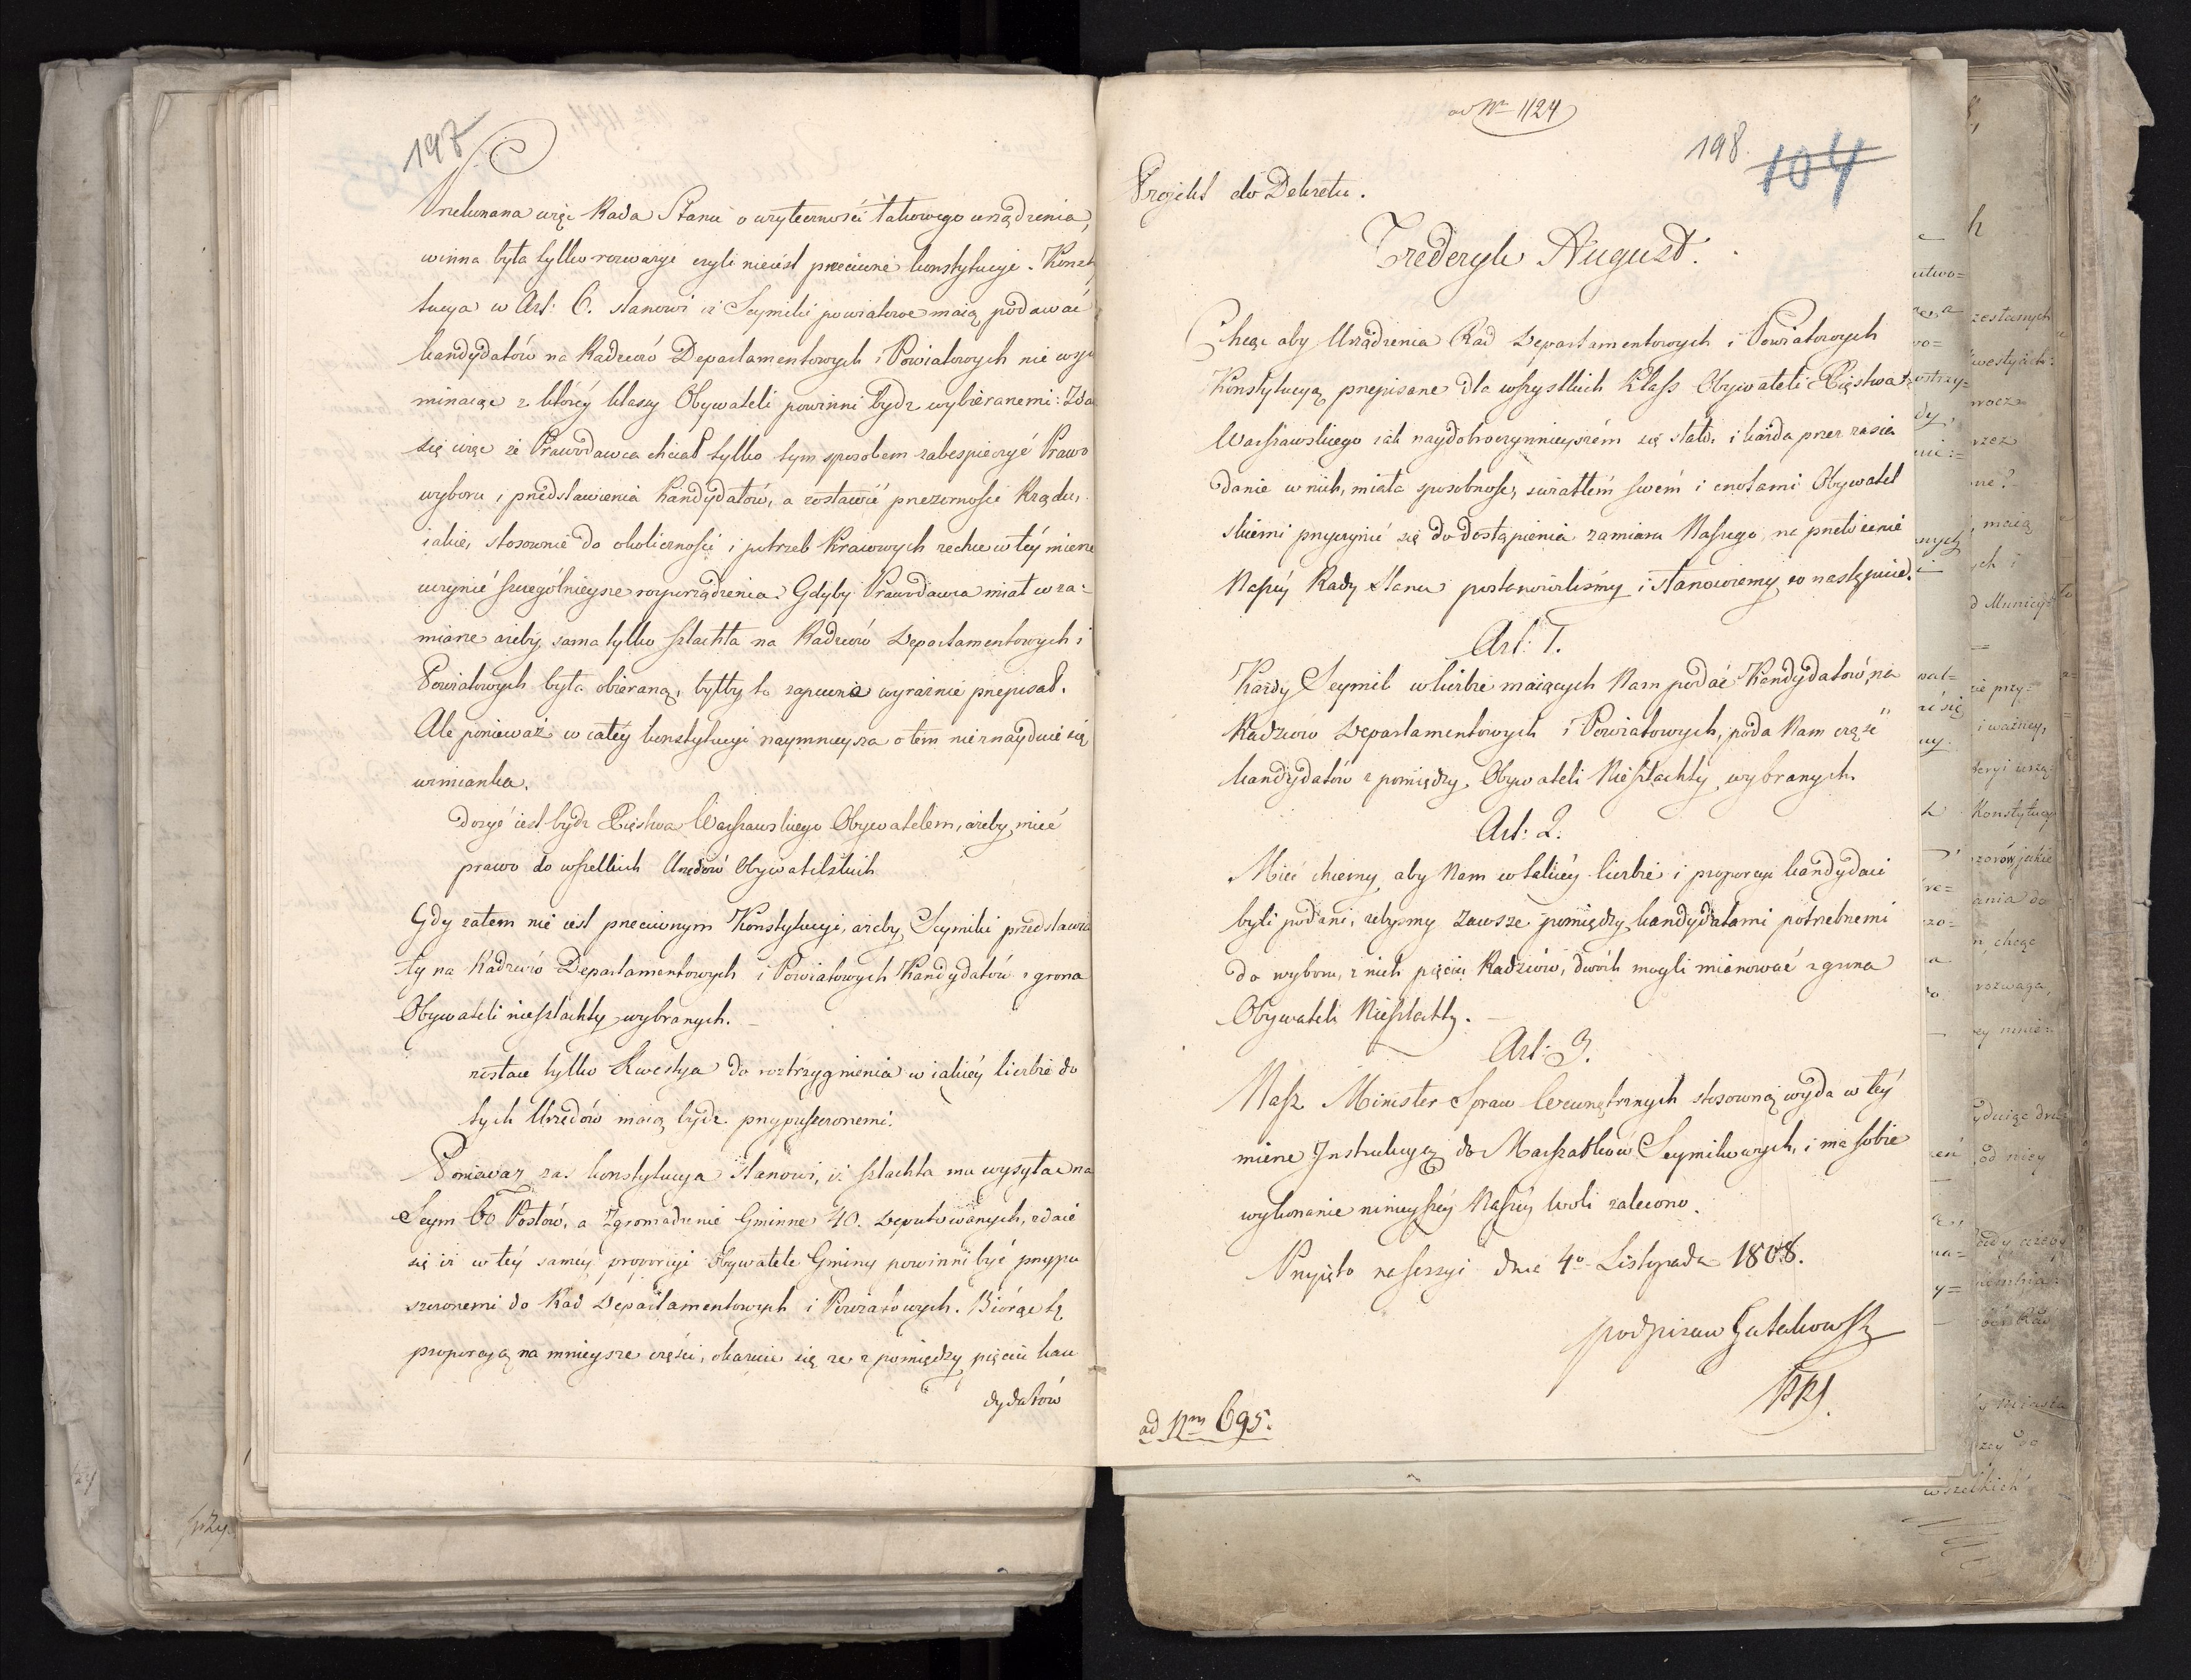 197
Przekonana więc Rada Stanu o użyteczności takowego urządzenia,
winna była tylko rozważyć czyli nieiest przeciwne konstytucyi. Konsty
tucya w Art: 6. stanowi iż Seymiki powiatowe maią podawać
kandydatów na Radzców Departamentowych i Powiatowych nie wspo
minaiąc z któréy klassy Obywateli powinni bydz wybieranemi: Zda
się więc że Prawodawca chciał tylko tym sposobem zabespieczyć Prawo
wyboru i przedstawienia Kandydatów, a zostawić przezorności Rządu,
iakie, stosownie do okoliczności i potrzeb Kraiowych zechce w téy mierze
uczynić szczególnieysze rozporządzenia. Gdyby Prawodawca miał w za=
miarze ażeby sama tylko szlachta na Radzców Departamentowych i
Powiatowych była obieraną, byłby to zapewne wyraźnie przepisał.
Ale ponieważ w całéy konstytucyi naymnieysza o tém nieznayduie się
wzmianka,
dosyć iest bydz Xięstwa Warszawskiego Obywatelem, ażeby mieć
prawo do wszelkich Urzędów Obywatelskich
Gdy zatem nie iest przeciwnym Konstytucyi, ażeby Seymiki przedstawia
ły na Radzców Departamentowych i Powiatowych Kandydatów z grona
Obywateli nieszlachty wybranych. —
zostaie tylko Kwestya do roztrzygnienia w iakiéy liczbie do
tych Urzędów maią bydz przypuszczonemi.
Ponieważ zaś konstytucya stanowi, iż szlachta ma wysyłać na
Seym 60 Posłów, a Zgromadzenie Gminne 40. Deputowanych, zdaie
się iż w téy saméy proporcyi Obywatele Gminy powinni być przypu
szczonemi do Rad Departamentowych i Powiatowych. Biorąc tę
proporcyą na mnieysze części, okazuie się że z pomiędzy pięciu kan
dydatów
ad Nr 1124
198.
104
Projekt do Dekretu.
Frederyk August.
Chcąc aby Urządzenia Rad Departamentowych i Powiatowych
Konstytucyą przepisane dla wszystkich Klass Obywateli Xięstwa
Warszawskiego iak naydobroczynnieyszém się stało, i każda przez zasia
danie w nich, miała sposobność, światłem swém i cnotami Obywatel
skiemi przyczynić się do dostąpienia zamiaru Naszego, na przełożenie
Naszéy Rady Stanu postanowiliśmy i stanowiemy co następuie.
Art: 1.
Każdy Seymik w liczbie maiących Nam podać Kandydatów, na
Radzców Departamentowych i Powiatowych, poda Nam część
kandydatów z pomiędzy Obywateli Nieszlachty wybranych.
Art: 2.
Mieć chcemy, aby Nam w takiéy liczbie i proporcyi kandydaci
byli podani, żebysmy zawsze pomiędzy kandydatami potrzebnemi
do wyboru, z nich pięciu Radzców, dwóch mogli mianować z grona
Obywateli Nieszlachty. —
Art: 3.
Nasz Minister Spraw Wewnętrznych stosowną wyda w téy
mierze Instrukcyą do Marszałków Seymikowych, i ma sobie
wykonanie ninieyszéy Naszéy woli zalecone.
Przyięto na sessyi dnia 4o Listopada 1808.
podpisano Gutakowski
PRS.
ad Nrm 695.